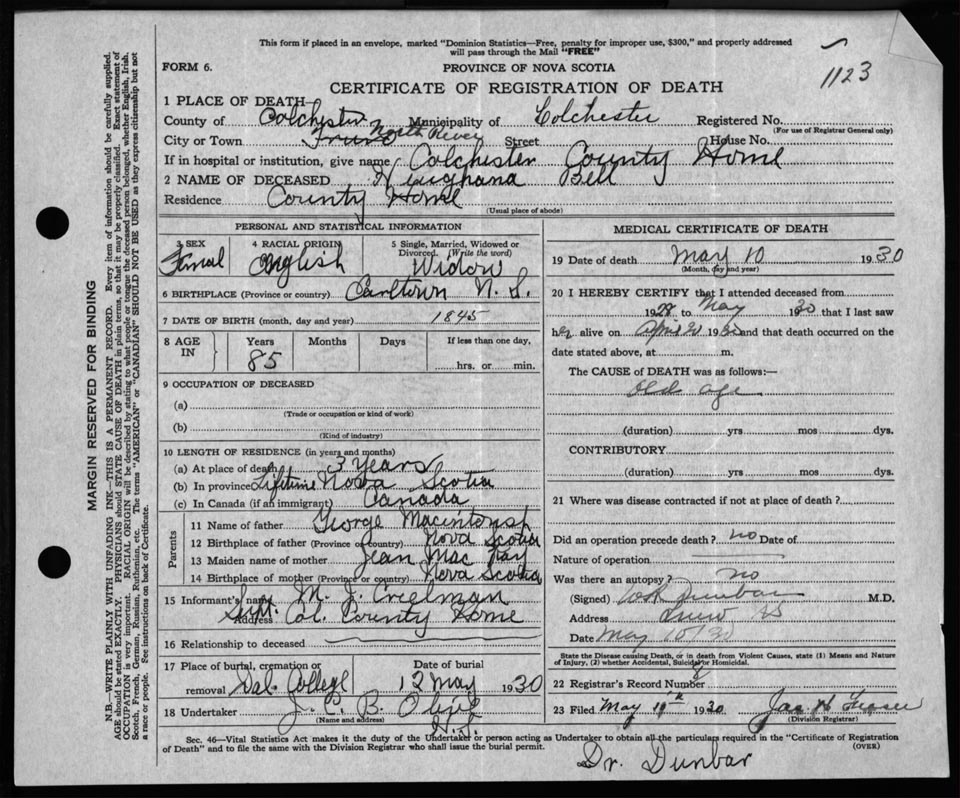 This form if placed in an envelope, marked "Dominion Statistics—Free, penalty for improper use, $300," and properly addressed
will pass through the Mail "FREE"
1123
FORM 6.
PROVINCE OF NOVA SCOTIA
CERTIFICATE OF REGISTRATION OF DEATH
1 PLACE OF DEATH—
County of Colchester Municipality of Colchester Registered No.
(For use of Registrar General only)
City or Town Truro North River Street House No.
If in hospital or institution, give name Colchester County Home
2 NAME OF DECEASED Bell
Residence County Home
(Usual place of abode)
PERSONAL AND STATISTICAL INFORMATION
3 SEX 4 RACIAL ORIGIN 5 Single, Married, Widowed or
Divorced. (Write the word)
Femal English Widow
6 BIRTHPLACE (Province or country) Earltown N. S.
7 DATE OF BIRTH (month, day and year) 1845
8 AGE IN Years Months Days If less than one day,
85 hrs. or min.
9 OCCUPATION OF DECEASED
(a)
(Trade or occupation or kind of work)
(b)
(Kind of industry)
10 LENGTH OF RESIDENCE (in years and months)
(a) At place of death 3 Years
(b) In province Lifetime Nova Scotia
(c) In Canada (if an immigrant) Canada
Parents
11 Name of father George Macintosh
12 Birthplace of father (Province or country) Nova Scotia
13 Maiden name of mother Jean Mac Kay
14 Birthplace of mother (Province or country) Nova Scotia
15 Informant's name M. J. Creelman
Address Supt. Col. County Home
16 Relationship to deceased
17 Place of burial, cremation or Date of burial
removal Dal. College 12 May 1930
18 Undertaker J. C. B.
(Name and address)
N.S.
MEDICAL CERTIFICATE OF DEATH
19 Date of death May 10 1930
(Month, day and year)
20 I HEREBY CERTIFY that I attended deceased from
1928 to May 1930 that I last saw
her alive on April 1930 and that death occurred on the
date stated above, at m.
The CAUSE of DEATH was as follows:—
old age
(duration) yrs mos dys.
CONTRIBUTORY
(duration) yrs mos dys.
21 Where was disease contracted if not at place of death?
Did an operation precede death? no Date of
Nature of operation
Was there an autopsy? no
(Signed) Dunbar M.D.
Address Truro NS
Date May 10/30
State the Disease causing Death, or in death from Violent Causes, state (1) Means and Nature
of Injury, (2) whether Accidental, Suicidal or Homicidal.
22 Registrar's Record Number 8
23 Filed May 1930 Jas. H Fraser
(Division Registrar)
Sec. 46—Vital Statistics Act makes it the duty of the Undertaker or person acting as Undertaker to obtain all the particulars required in the "Certificate of Registration
of Death" and to file the same with the Division Registrar who shall issue the burial permit.
(OVER)
Dr. Dunbar
MARGIN RESERVED FOR BINDING
N.B.—WRITE PLAINLY WITH UNFADING INK—THIS IS A PERMANENT RECORD. Every item of information should be carefully supplied.
AGE should be stated EXACTLY. PHYSICIANS should STATE CAUSE OF DEATH in plain terms, so that it may be properly classified. Exact statement of
OCCUPATION is very important. RACIAL ORIGIN will be described by stating to what people or tongue the deceased person belonged, whether English, Irish,
Scotch, French, German, Russian, Ruthenian, etc. The terms "AMERICAN" or "CANADIAN" SHOULD NOT BE USED as they express citizenship but not
a race or people. See instructions on back of Certificate.